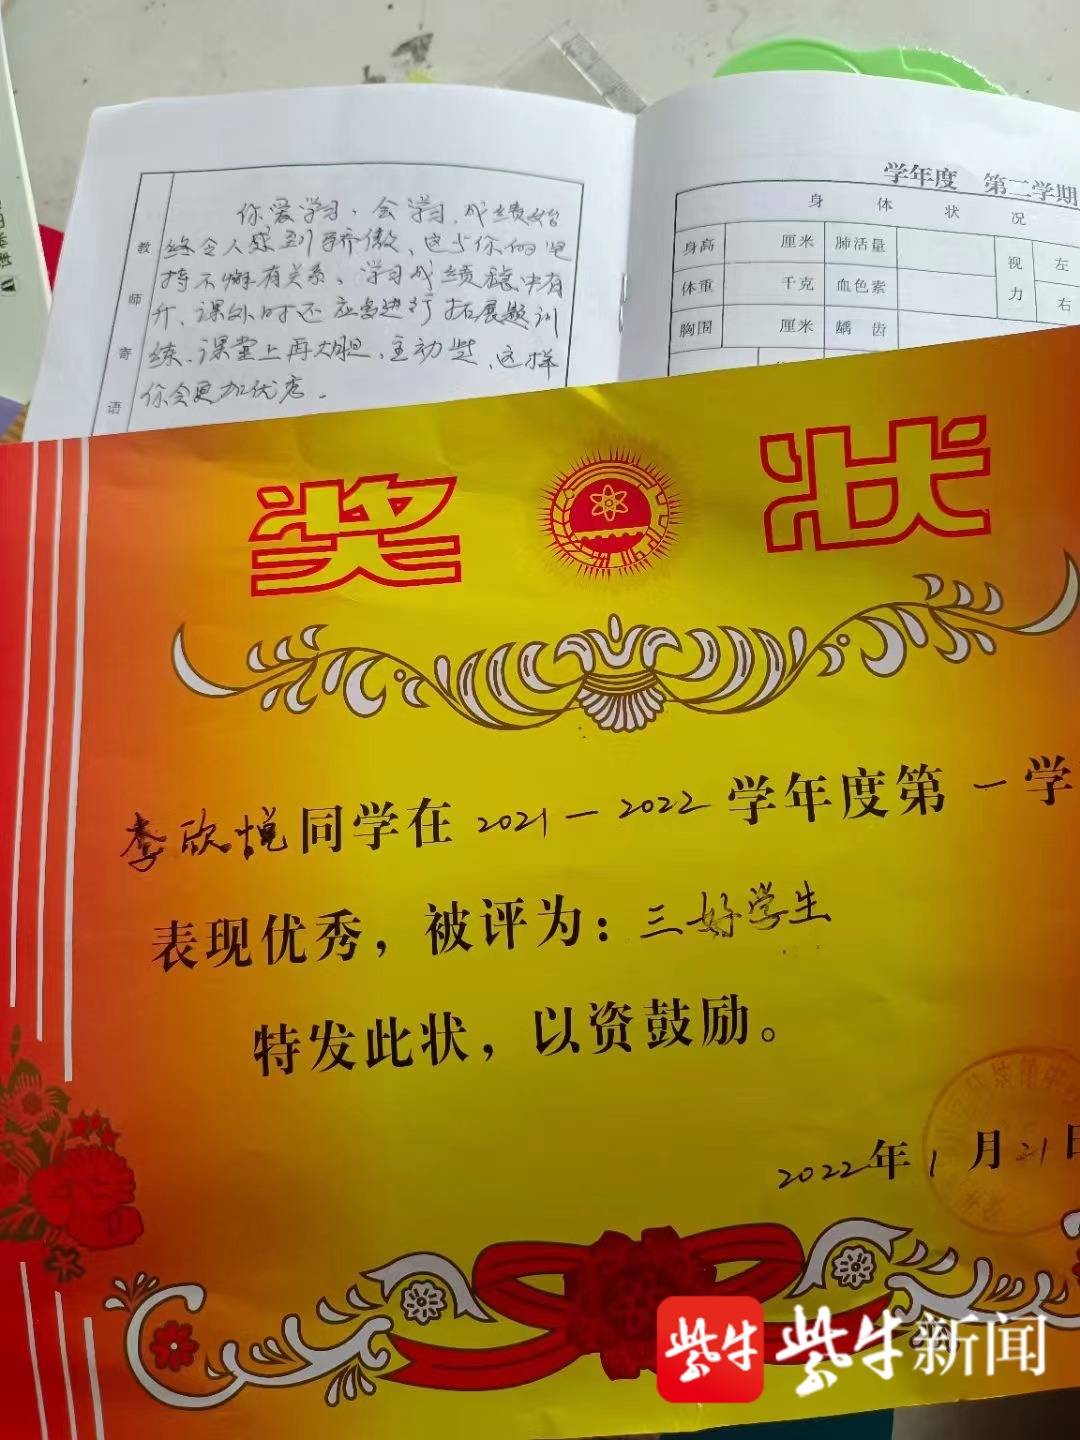 教师寄语
你爱学习、会学习,成绩始
终令人感到骄傲、这与你的坚
持不懈有关系、学习成绩稳中有
升、课外时还应多进行拓展题训
练、课堂上再大胆、主动些、这样
你会更加优秀.
学年度 第二学期
身体状况
身高 厘米 肺活量 视力 左
体重 千克 血色素 右
胸围 厘米 龋齿
奖状
李欣悦同学在2021-2022学年度第一学
表现优秀,被评为:三好学生
特发此状,以资鼓励。
2022年1月21日
紫牛 紫牛新闻